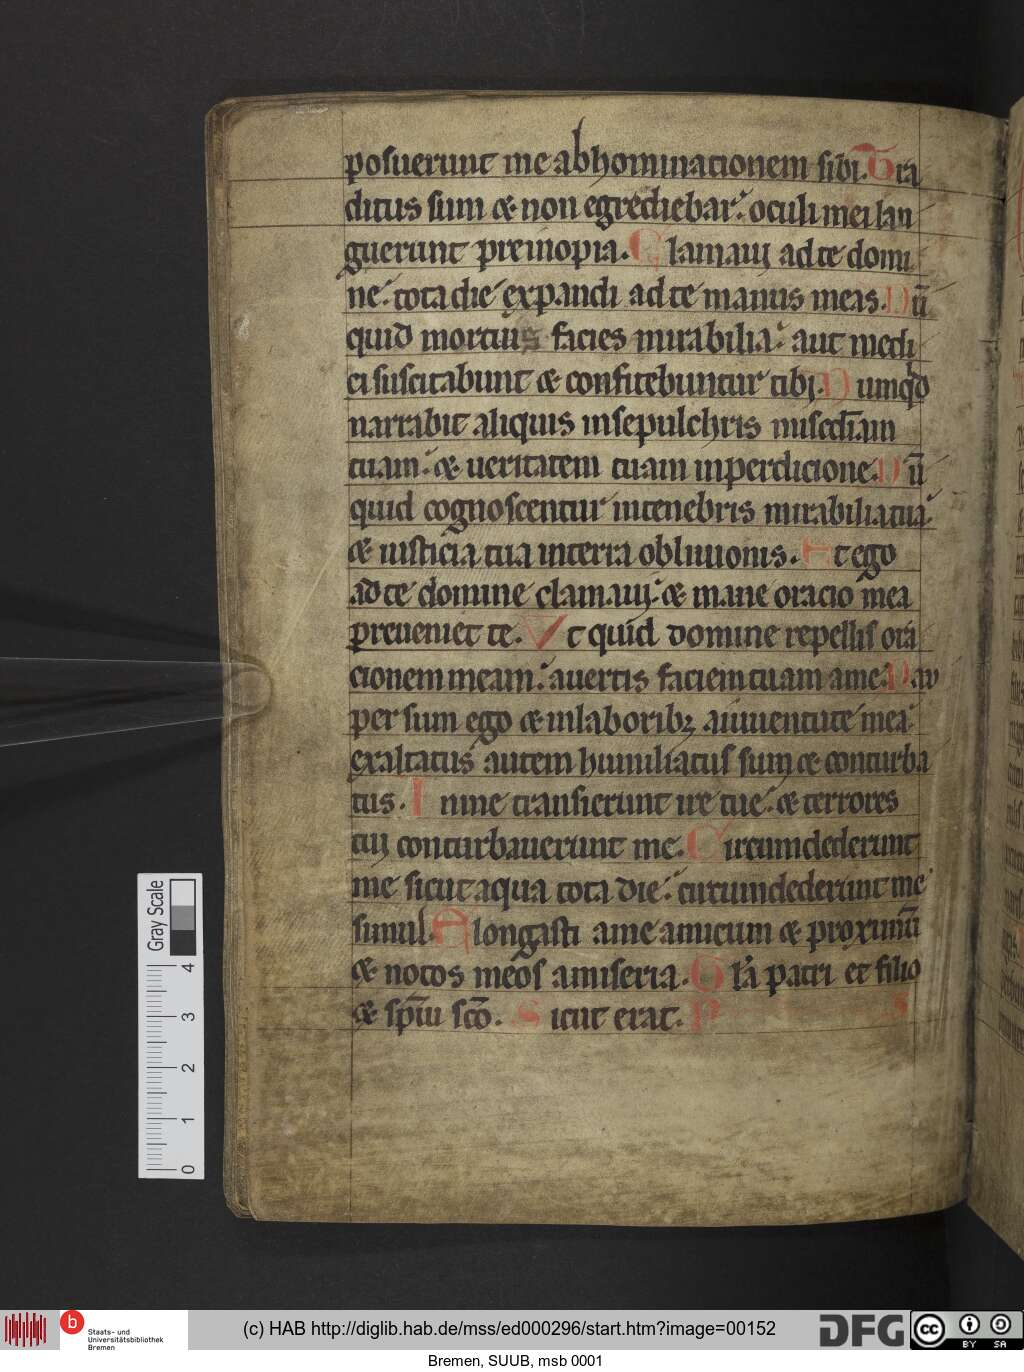 posuerunt me abhominationem sibi. Tra
ditus sum & non egrediebar: oculi mei lan
guerunt pre inopia. Clamauij ad te domi
ne: tota die expandi ad te manus meas. Nū
quid mortuis facies mirabilia: aut medi
ci suscitabunt & confitebuntur tibi. Numqd
narrabit aliquis in sepulchris misedīam
tuam: & ueritatem tuam in perditione. Nū
quid cognoscentur in tenebris mirabilia tua:
& iusticia tua in terra obliuionis. Et ego
ad te domine clamauij: & mane oratio mea
preueniet te. Vt quid domine repellis ora
cionem meam: auertis faciem tuam a me. Pau
per sum ego & in laboribꝫ a iuuentute mea:
exaltatus autem humiliatus sum & conturba
tus. In me transierunt ire tue: & terrores
tuij conturbauerunt me. Circumdederunt
me sicut aqua tota die: circumdederunt me
simul. Elongasti a me amicum & proximū
& notos meos a miseria. Glā patri et filio
& spīui scō. Sicut erat. P
Gray Scale
4
3
2
1
0
b
Staats- und
Universitätsbibliothek
Bremen
(c) HAB http://diglib.hab.de/mss/ed000296/start.htm?image=00152
DFG
cc
BY SA
Bremen, SUUB, msb 0001